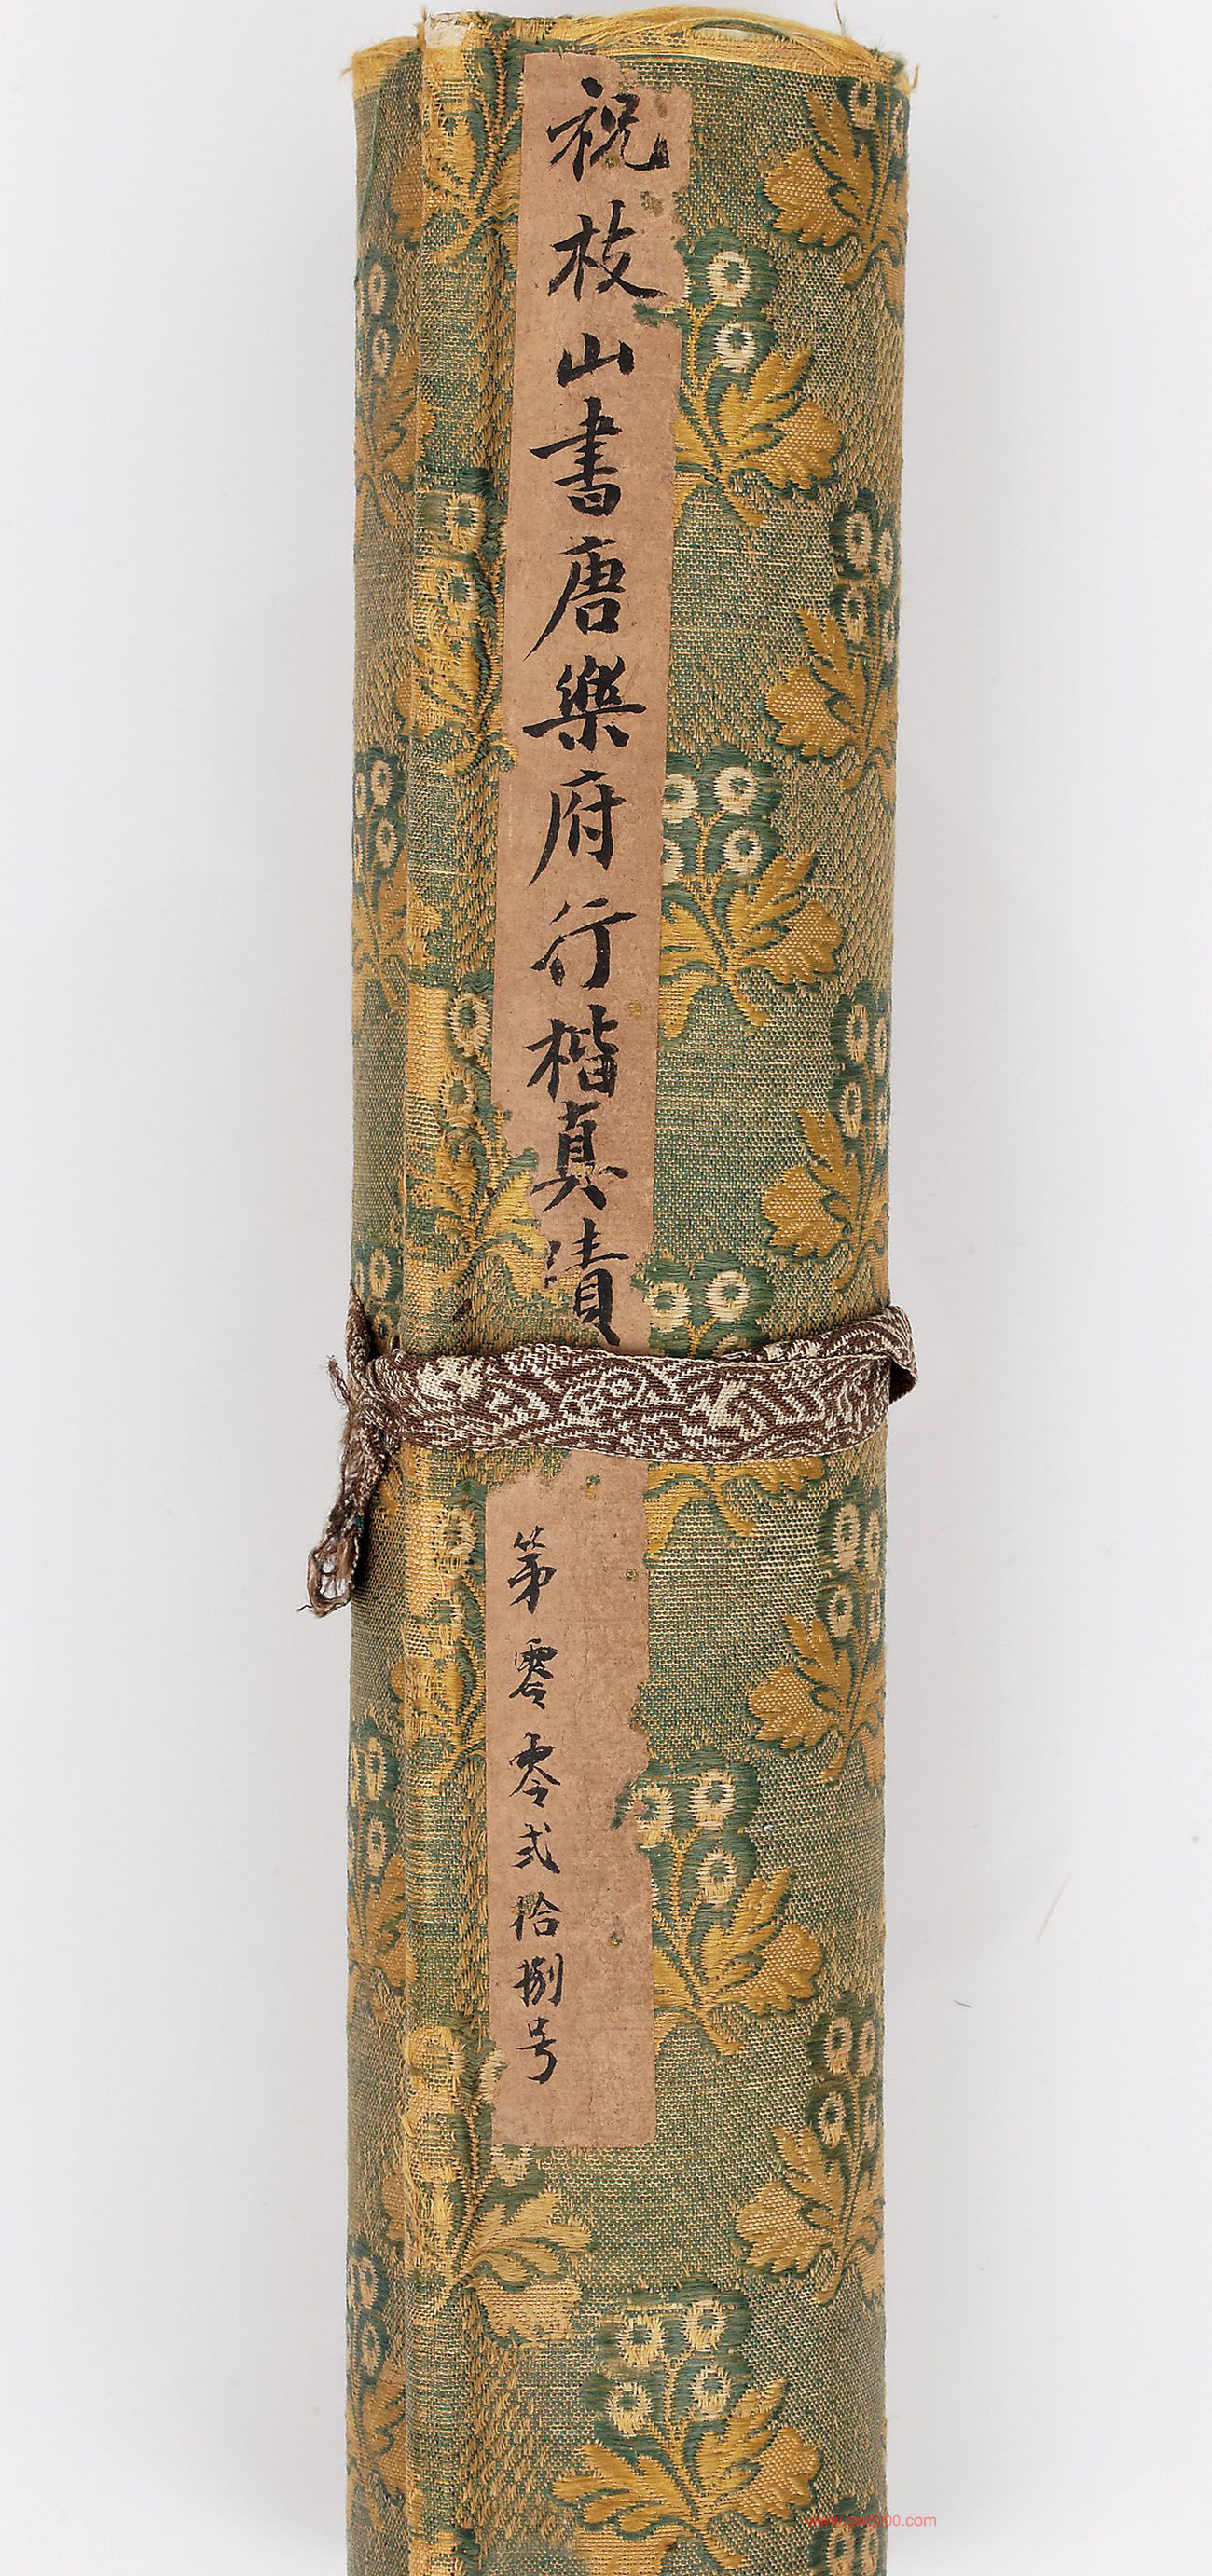 祝枝山書唐樂府行楷真蹟
第零零弍拾捌号